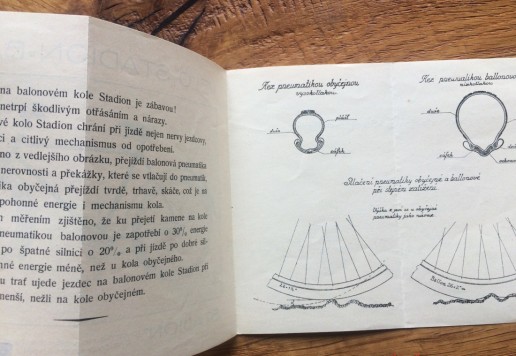 na balonovém kole Stadion je zábavou!
netrpí škodlivým otřásáním a nárazy.
vé kolo Stadion chrání při jízdě nejen nervy jezdcovy,
ci a citlivý mechanismus od opotřebení.
no z vedlejšího obrázku, přejíždí balonová pneumatika
nerovnosti a překážky, které se vtlačují do pneumatik.
ika obyčejná přejíždí tvrdě, trhavě, skáče, což je na
pohonné energie i mechanismu kola.
m měřením zjištěno, že ku přejetí kamene na kole
neumatikou balonovou je zapotřebí o 30% energie
po špatné silnici o 20% a při jízdě po dobré sil-
nné energie méně, než u kola obyčejného.
u trať ujede jezdec na balonovém kole Stadion při
menší, nežli na kole obyčejném.
Řez pneumatikou obyčejnou
vysokotlakou
duše
plášť
ráfek
Řez pneumatikou ballonovou
nízkotlakou
duše
ráfek
Vtlačení pneumatiky obyčejné a ballonové
při stejném zatížení